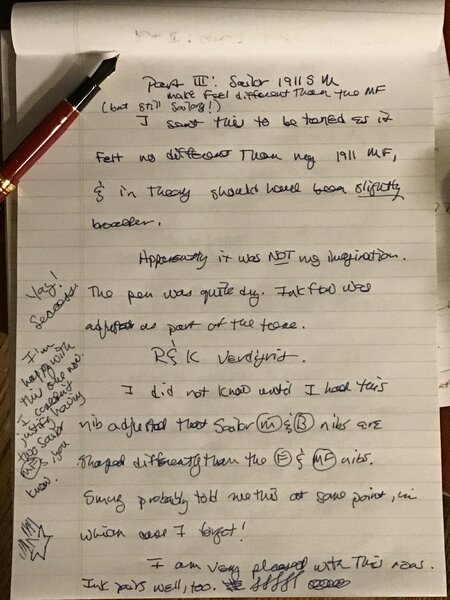 Part III: Sailor 1911 S M
make feel different than the MF
(but still Sailory!)
I sent this to be tuned as it
felt no different than my 1911 MF,
& in theory should have been slightly
broader.
Apparently it was NOT my imagination.
The pen was quite dry. Ink flow was
adjusted as part of the tune.
R & K Verdigris.
I did not know until I had this
nib adjusted that Sailor M & B nibs are
shaped differently than the F & MF nibs.
Smug probably told me this at some point, in
which case I forgot!
I am very pleased with this now.
Ink pairs well, too.
Yay!
I'm
happy with
this one now.
I couldn't
justify having
two Sailor
MFs, you
know.